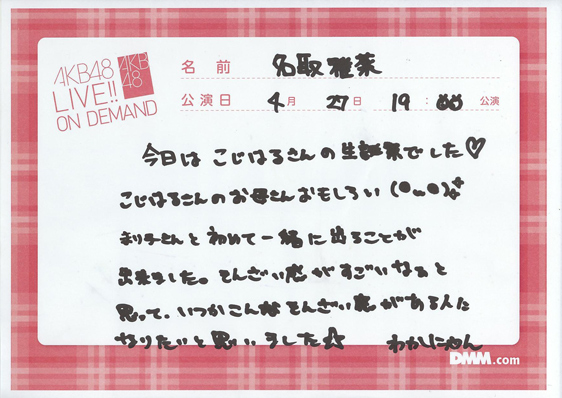 AKB48
LIVE!!
ON DEMAND
AKB
48
名前 名取雅菜
公演日 4月27日 19:00公演
今日はこじはるさんの生誕祭でした♡
こじはるさんのお母さんおもしろい
まり子さんと初めて一緒に出ることが
出来ました。そんざい感がすごいなぁと
思って、いつかこんなそんざい感がある人に
なりたいと思いました☆ わかにゃん
DMM.com